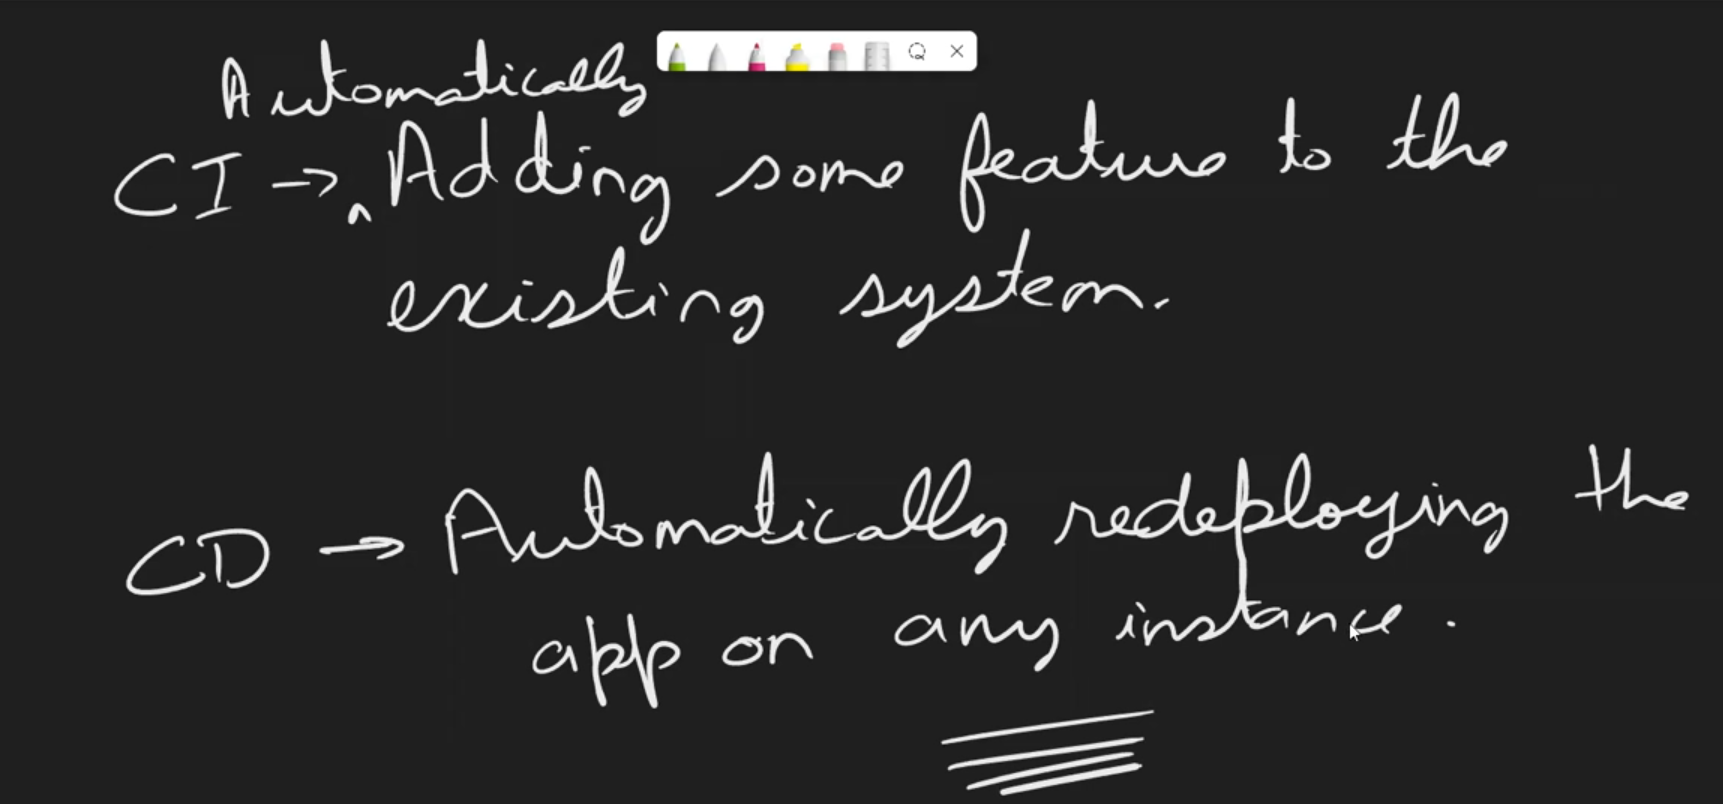 Automatically
CI → ^ Adding some feature to the
existing system.
CD → Automatically redeploying the
app on any instance.